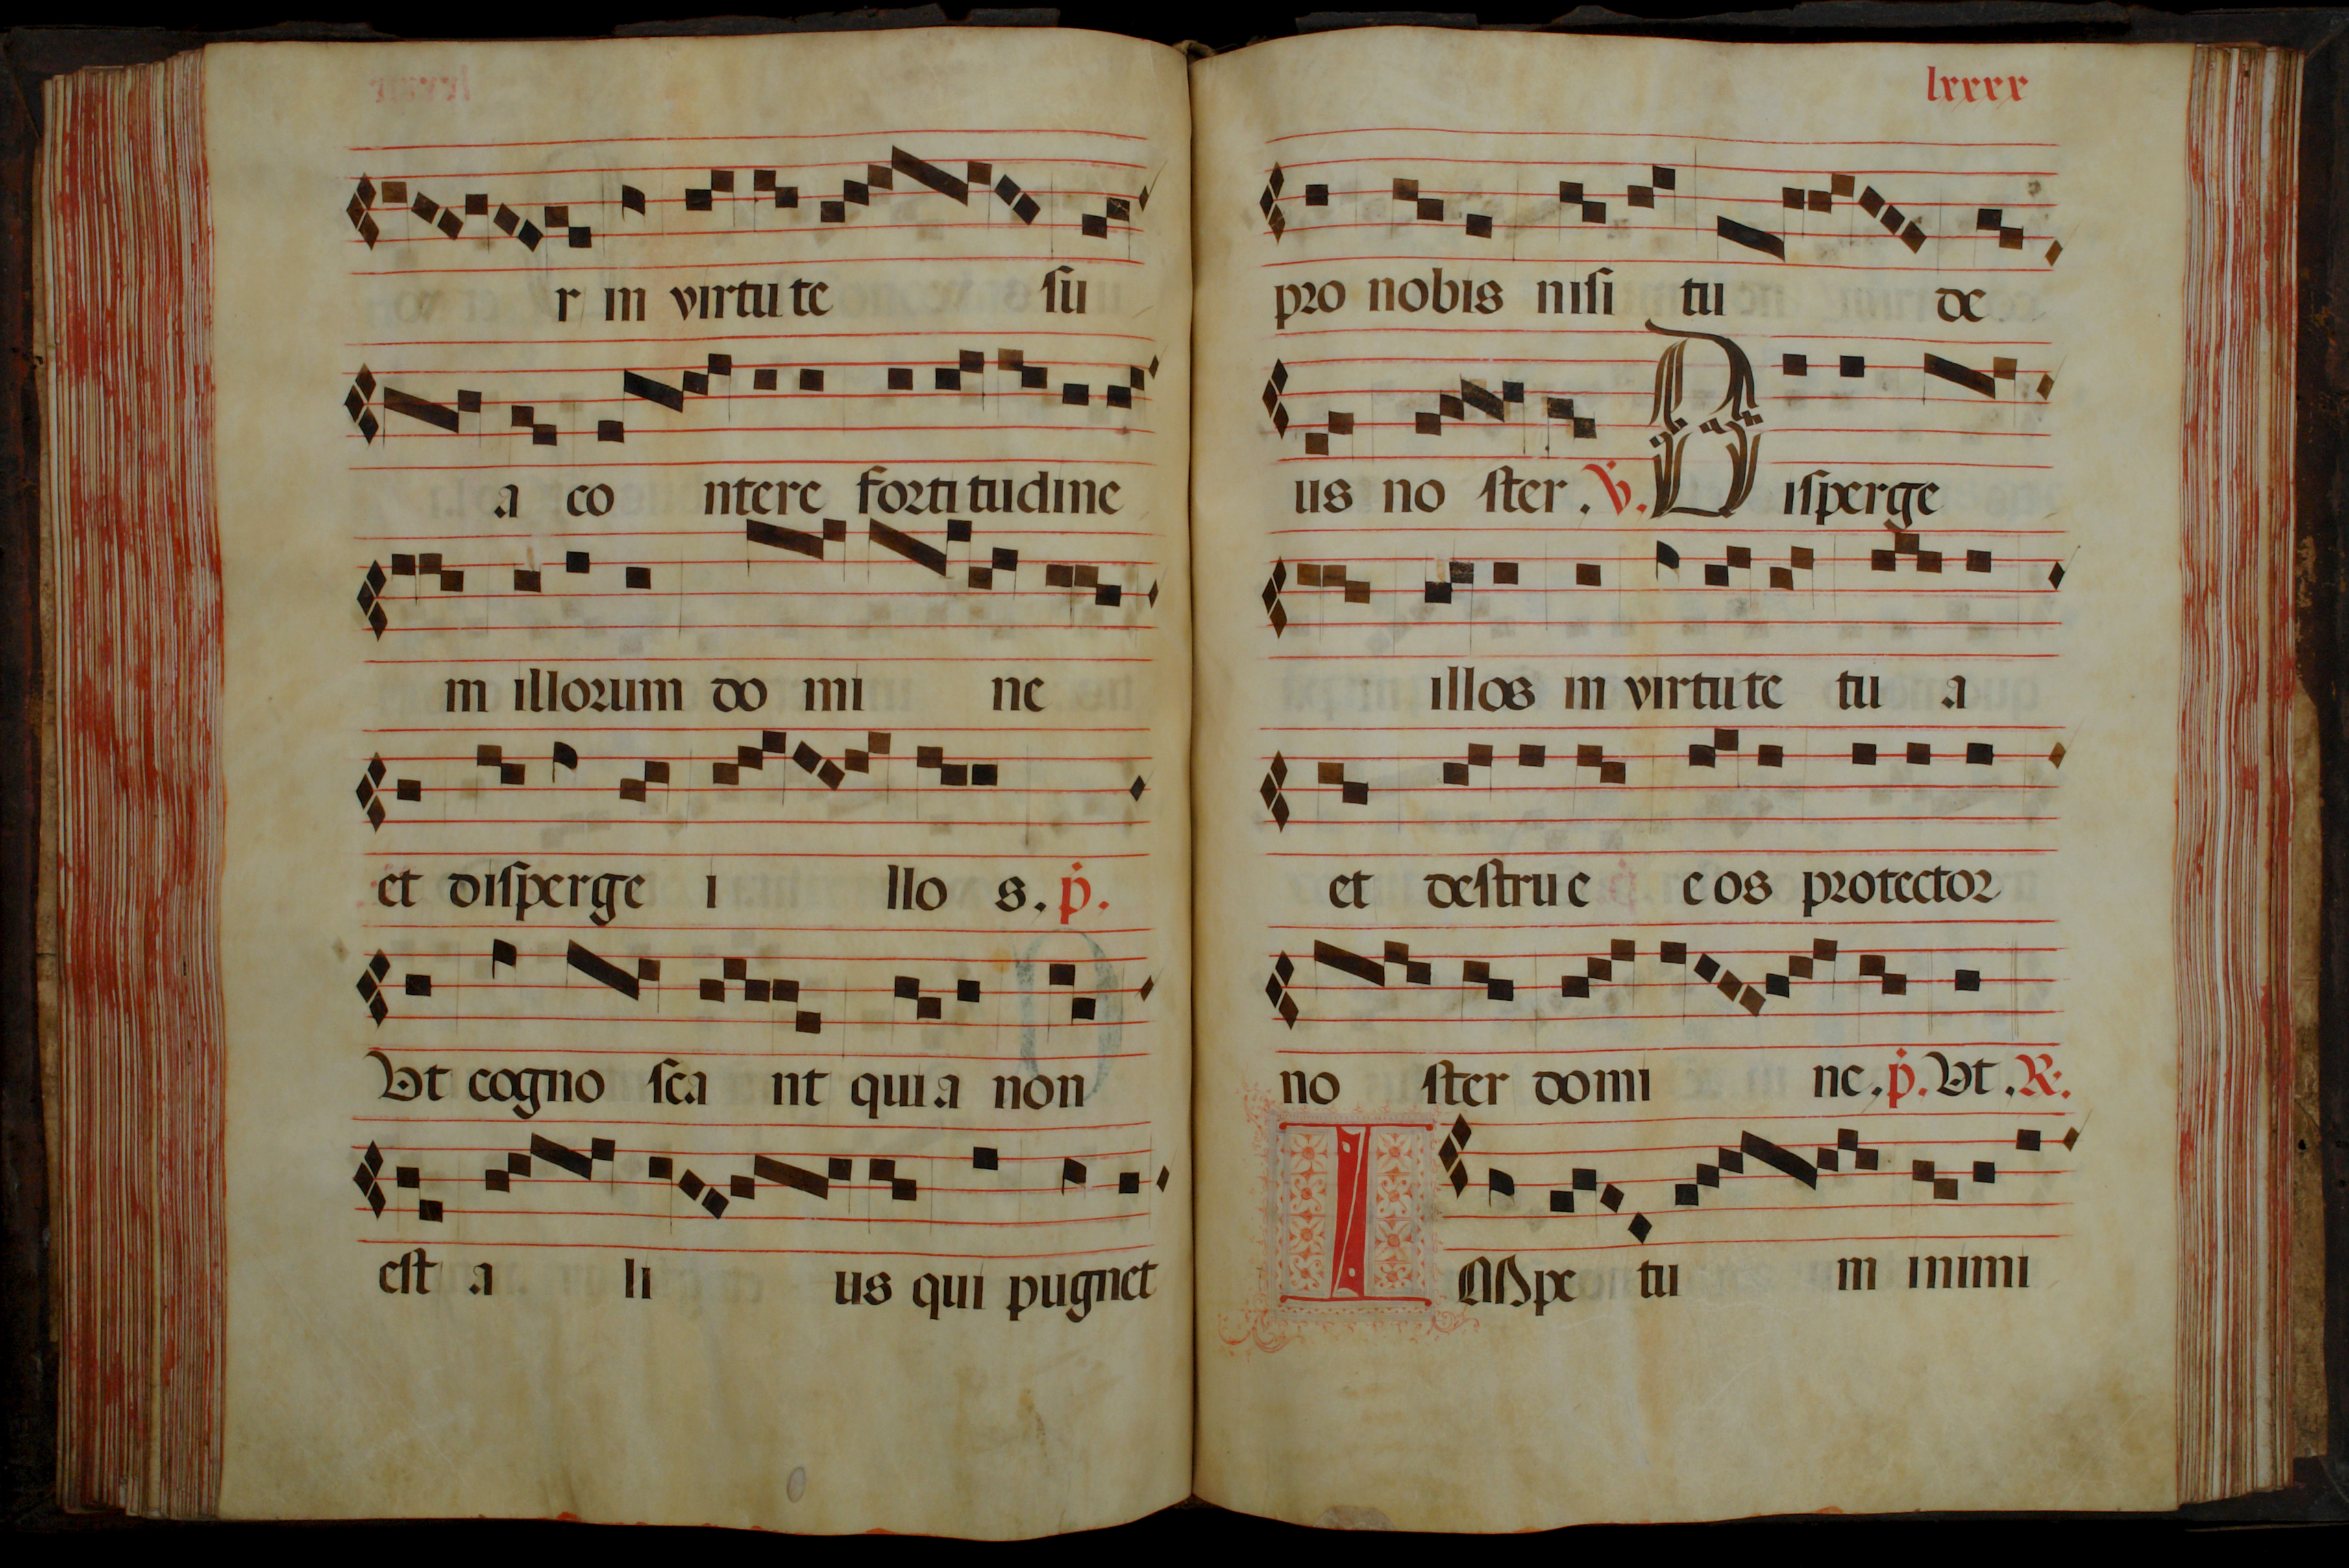 r in virtute su
a co ntere fortitudine
m illorum do mi ne
et disperge i llo s. p.
Ut cogno sca nt quia non
est a li us qui pugnet
lxxxx
pro nobis nisi tu de
us no ster. V. D isperge
illos in virtute tu a
et destrue eos protector
no ster domi ne. p. Ut. R.
IMpe tu m inimi